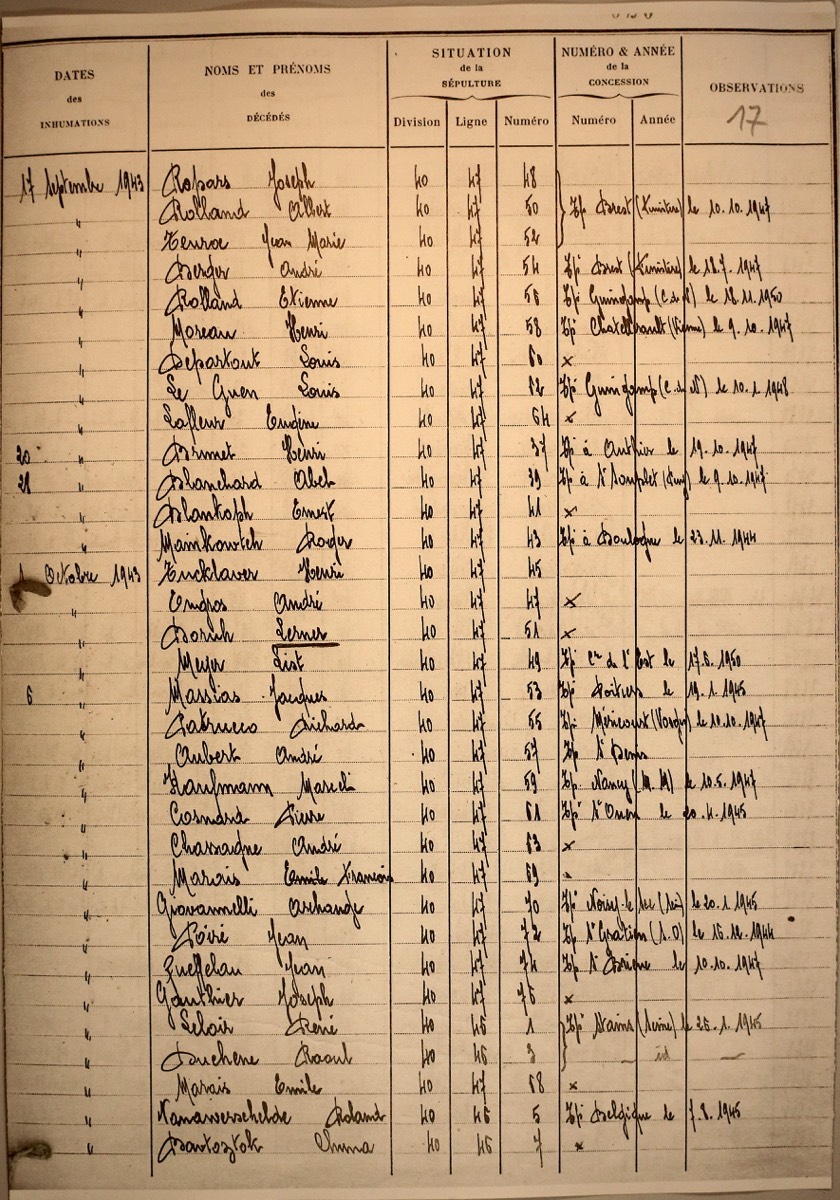 DATES des INHUMATIONS
NOMS ET PRÉNOMS des DÉCÉDÉS
SITUATION de la SÉPULTURE
NUMÉRO & ANNÉE de la CONCESSION
OBSERVATIONS
Division Ligne Numéro Numéro Année
17
17 Septembre 1943 Ropars Joseph 40 47 48
" Rolland Albert 40 47 50 Tpé Brest (Finistère) le 10.10.1947
" Jean Marie 40 47 52
" Berger André 40 47 54 Tpé Brest (Finistère) le 1947
" Rolland Etienne 40 47 56 Tpé Guingamp (C.d.N) le 18.11.1950
" Moreau Henri 40 47 58 Tpé Chatellerault (Vienne) le 9.10.1947
" Departout Louis 40 47 60 x
" Le Guen Louis 40 47 62 Tpé Guingamp (C.d.N) le 10.1.1948
" Lafleur Eugène 40 47 64 x
20 " Brimet Henri 40 47 37 Tpé à le 19.10.1947
28 " Blanchard Abel 40 47 39 Tpé à le 9.10.1947
" Blankoph Ernest 40 47 41 x
" Mainkowtch Roger 40 47 43 Tpé à Boulogne le 23.11.1944
1 Octobre 1943 Henri 40 47 45
" Engros André 40 47 47 x
" Boruh Lerner 40 47 51 x
" Meyer List 40 47 49 Tpé de l'Est le 1950
6 " Massias Jacques 40 47 53 Tpé Poitiers le 19.1.1945
" Patrucco Richard 40 47 55 Tpé Méricourt le 10.10.1947
" Aubert André 40 47 57 Tpé St Denis
" Kaufmann Marcel 40 47 59 Tpé Nancy (M.M) le 10.5.1947
" Cosnard Pierre 40 47 61 Tpé St Ouen le 20.4.1945
" Chassagne André 40 47 63 x
" Marais Emile François 40 47 69
" Giovannelli Archange 40 47 70 Tpé Noisy-le-Sec le 20.1.1945
" Poiré Jean 40 47 72 Tpé St Gratien (S.O) le 1944
" Queffelau Jean 40 47 74 Tpé St Brieuc le 10.10.1947
" Gauthier Joseph 40 47 76 x
" Leloir René 40 46 1 Tpé Stains (Seine) le 1945
" Duchene Raoul 40 46 3 id
" Marais Emile 40 47 68 x
" Vanawerschelde Roland 40 46 5 Tpé Belgique le 7.8.1945
" Bartosztok Chuna 40 46 7 x